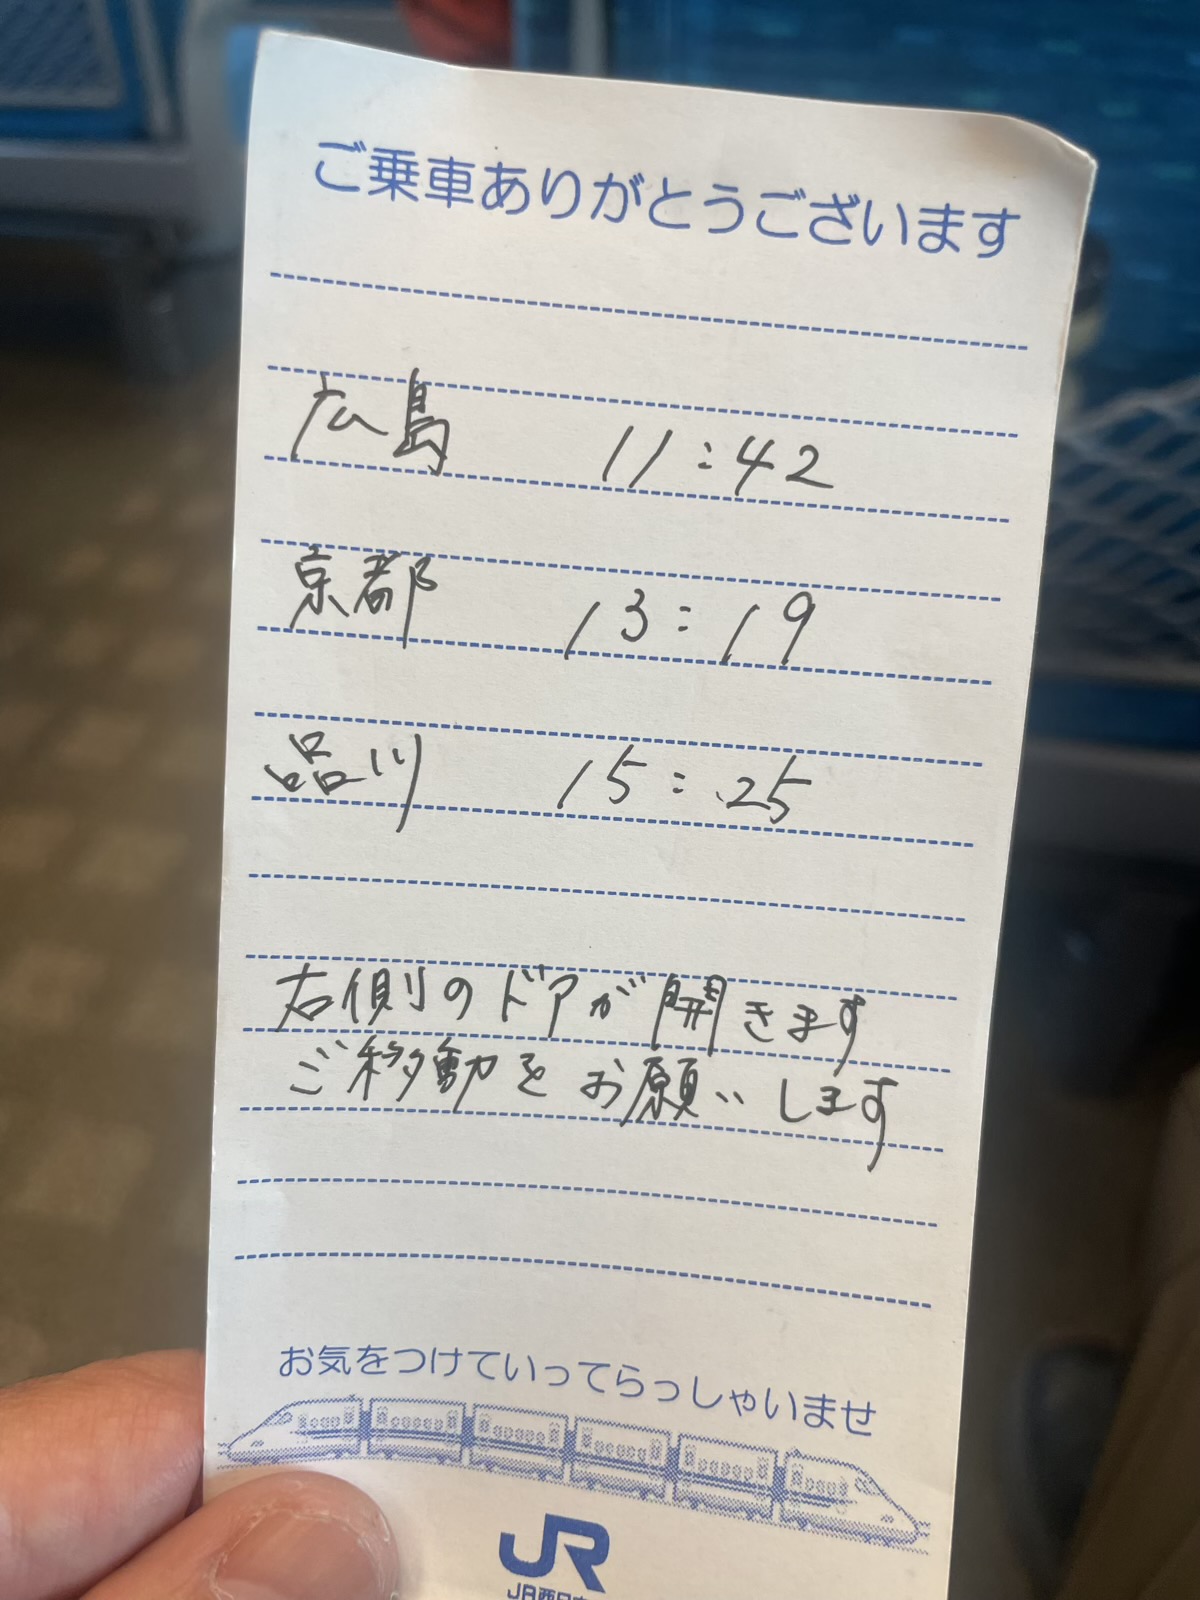 ご乗車ありがとうございます
広島 11:42
京都 13:19
品川 15:25
右側のドアが開きます
ご移動をお願いします
お気をつけていってらっしゃいませ
JR
JR西日本